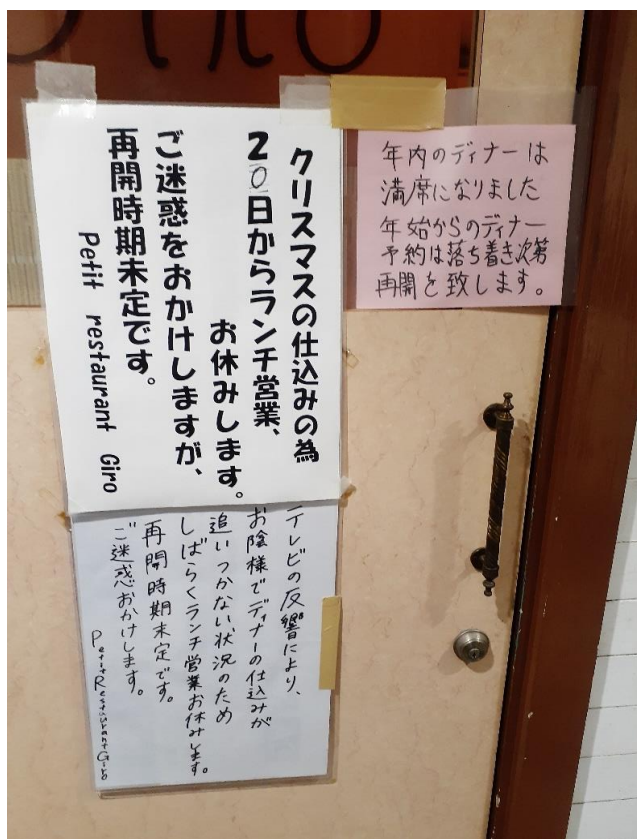 クリスマスの仕込みの為
20日からランチ営業、
お休みします。
ご迷惑をおかけしますが、
再開時期未定です。
Petit restaurant Giro
年内のディナーは
満席になりました
年始からのディナー
予約は落ち着き次第
再開を致します。
テレビの反響により、
お陰様でディナーの仕込みが
追いつかない状況のため
しばらくランチ営業お休みします。
再開時期未定です。
ご迷惑おかけします。
Petit Restaurant Giro